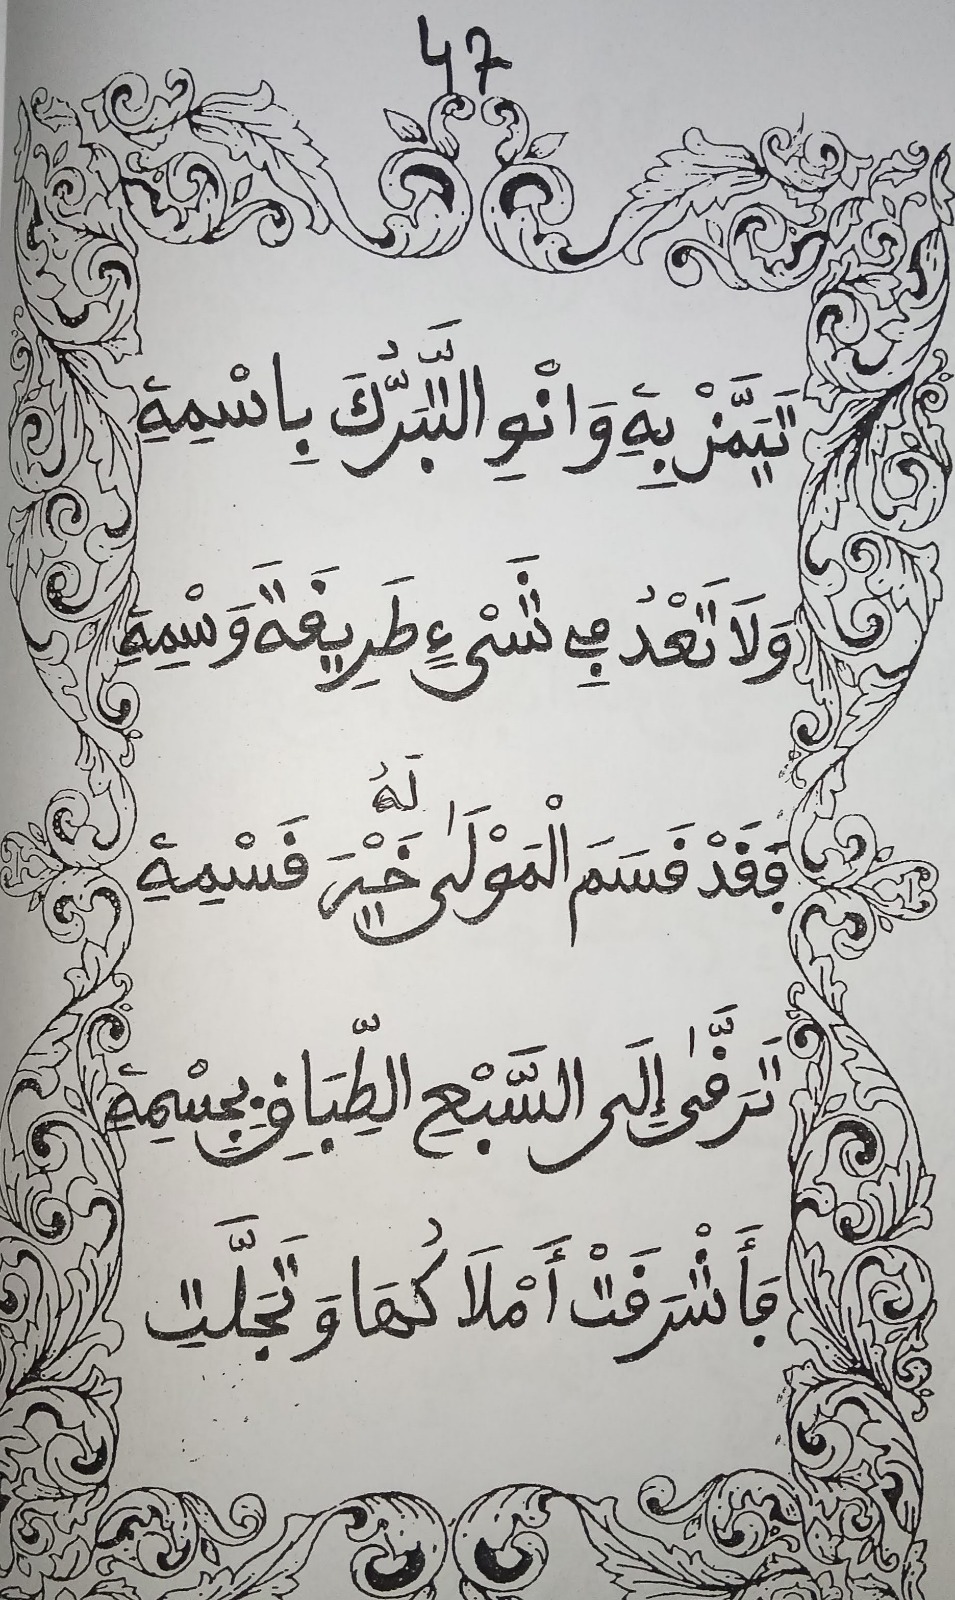 47
تَيَمَّنْ بِهِ وَانْوِ التَّبَرُّكَ بِاسْمِهِ
وَلَا تَعْدُ فِي شَيْءٍ طَرِيقَةَ وَسْمِهِ
فَقَدْ قَسَمَ الْمَوْلَى لَهُ خَيْرَ قَسْمِهِ
تَرَقَّى إِلَى السَّبْعِ الطِّبَاقِ بِجِسْمِهِ
فَأَشْرَقَتْ أَمْلَاكُهَا وَتَجَلَّتِ